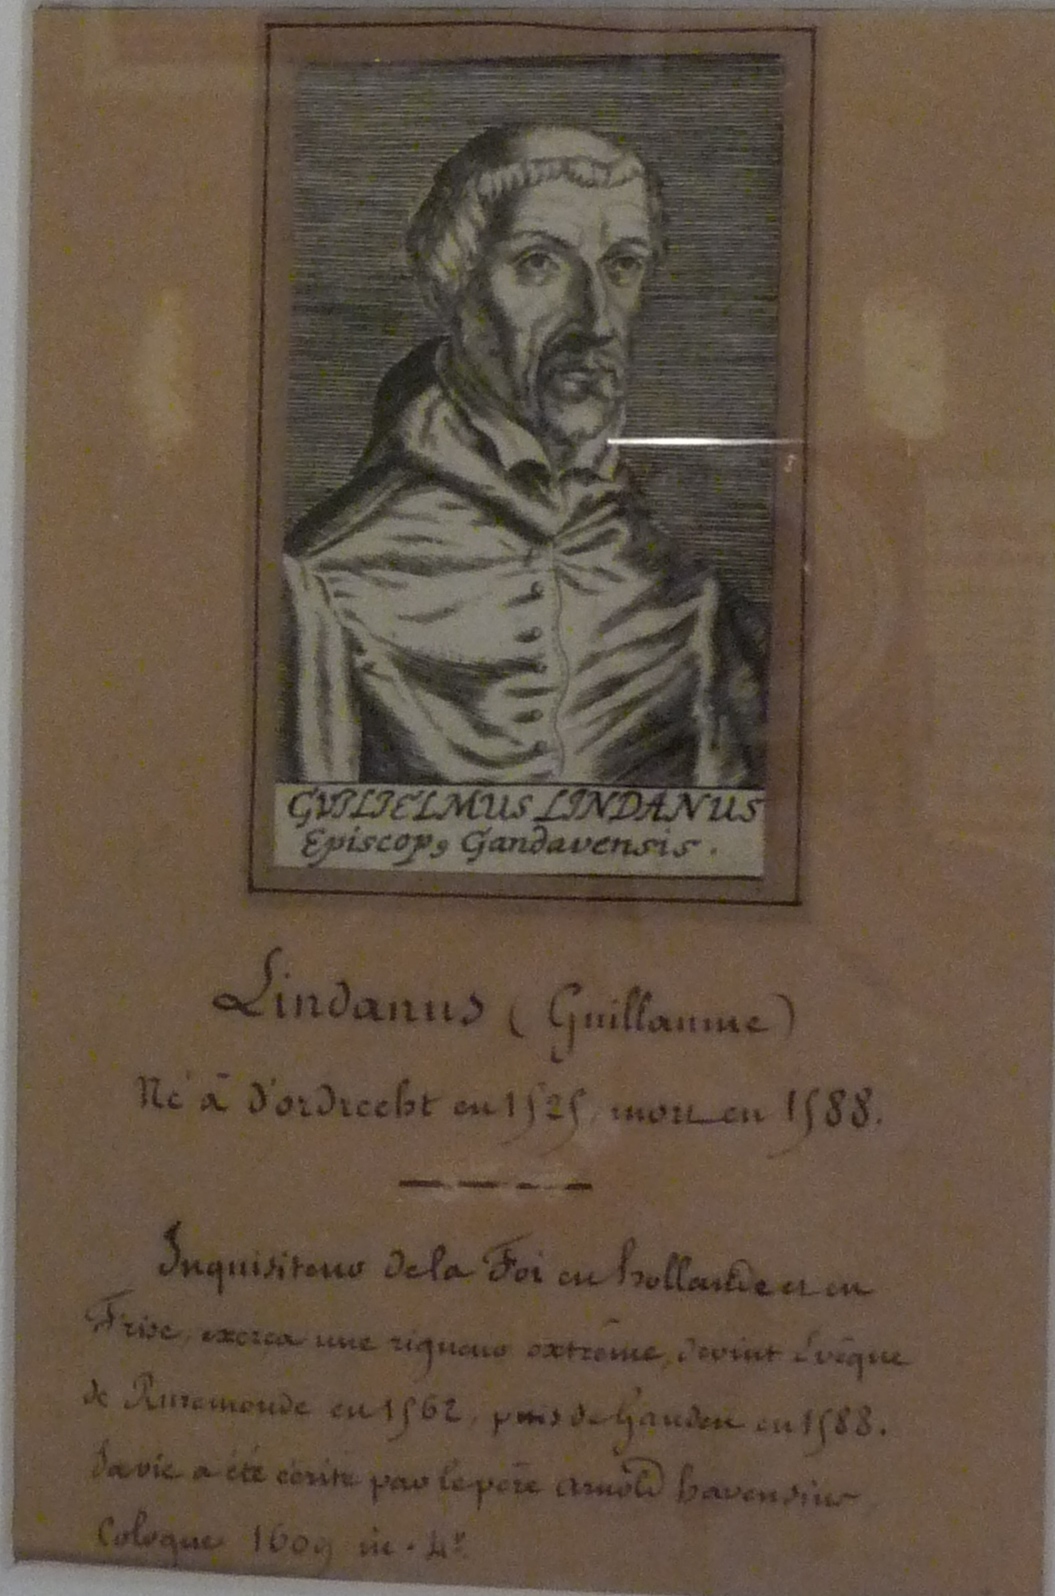 GVILIELMUS LINDANUS
Episcopꝯ Gandavensis.
Lindanus (Guillaume)
Né à d'ordrecht en 1525, mort en 1588.
Inquisiteur de la Foi en hollande et en
Frise, exerça une rigueur extrême, devint Evêque
de Ruremonde en 1562, puis de Ganden en 1588.
Sa vie a été écrite par le père Arnold havensius
Cologne 1609 in-4º